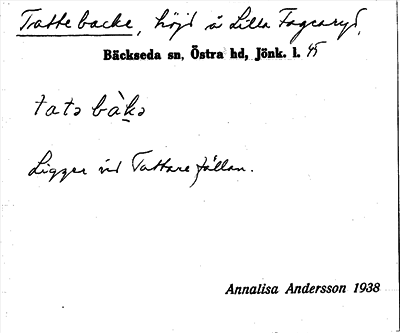 Tatte backe, höjd å Lilla Fagcaryd,
Bäckseda sn, Östra hd, Jönk. l. 45
tatə bàkə
Ligger vid Tattarefållan.
Annalisa Andersson 1938